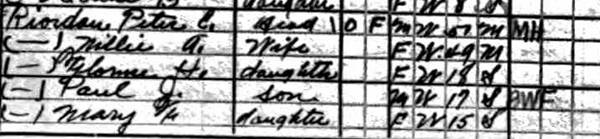 daughter F W 8 S
Riordan, Peter C. Head 1 O F M W 51 M MH
(—) Nillie A. Wife F W 49 M
(—) H. daughter F W 18 S
(—) Paul J. son M W 17 S BWF
(—) Mary daughter F W 15 S